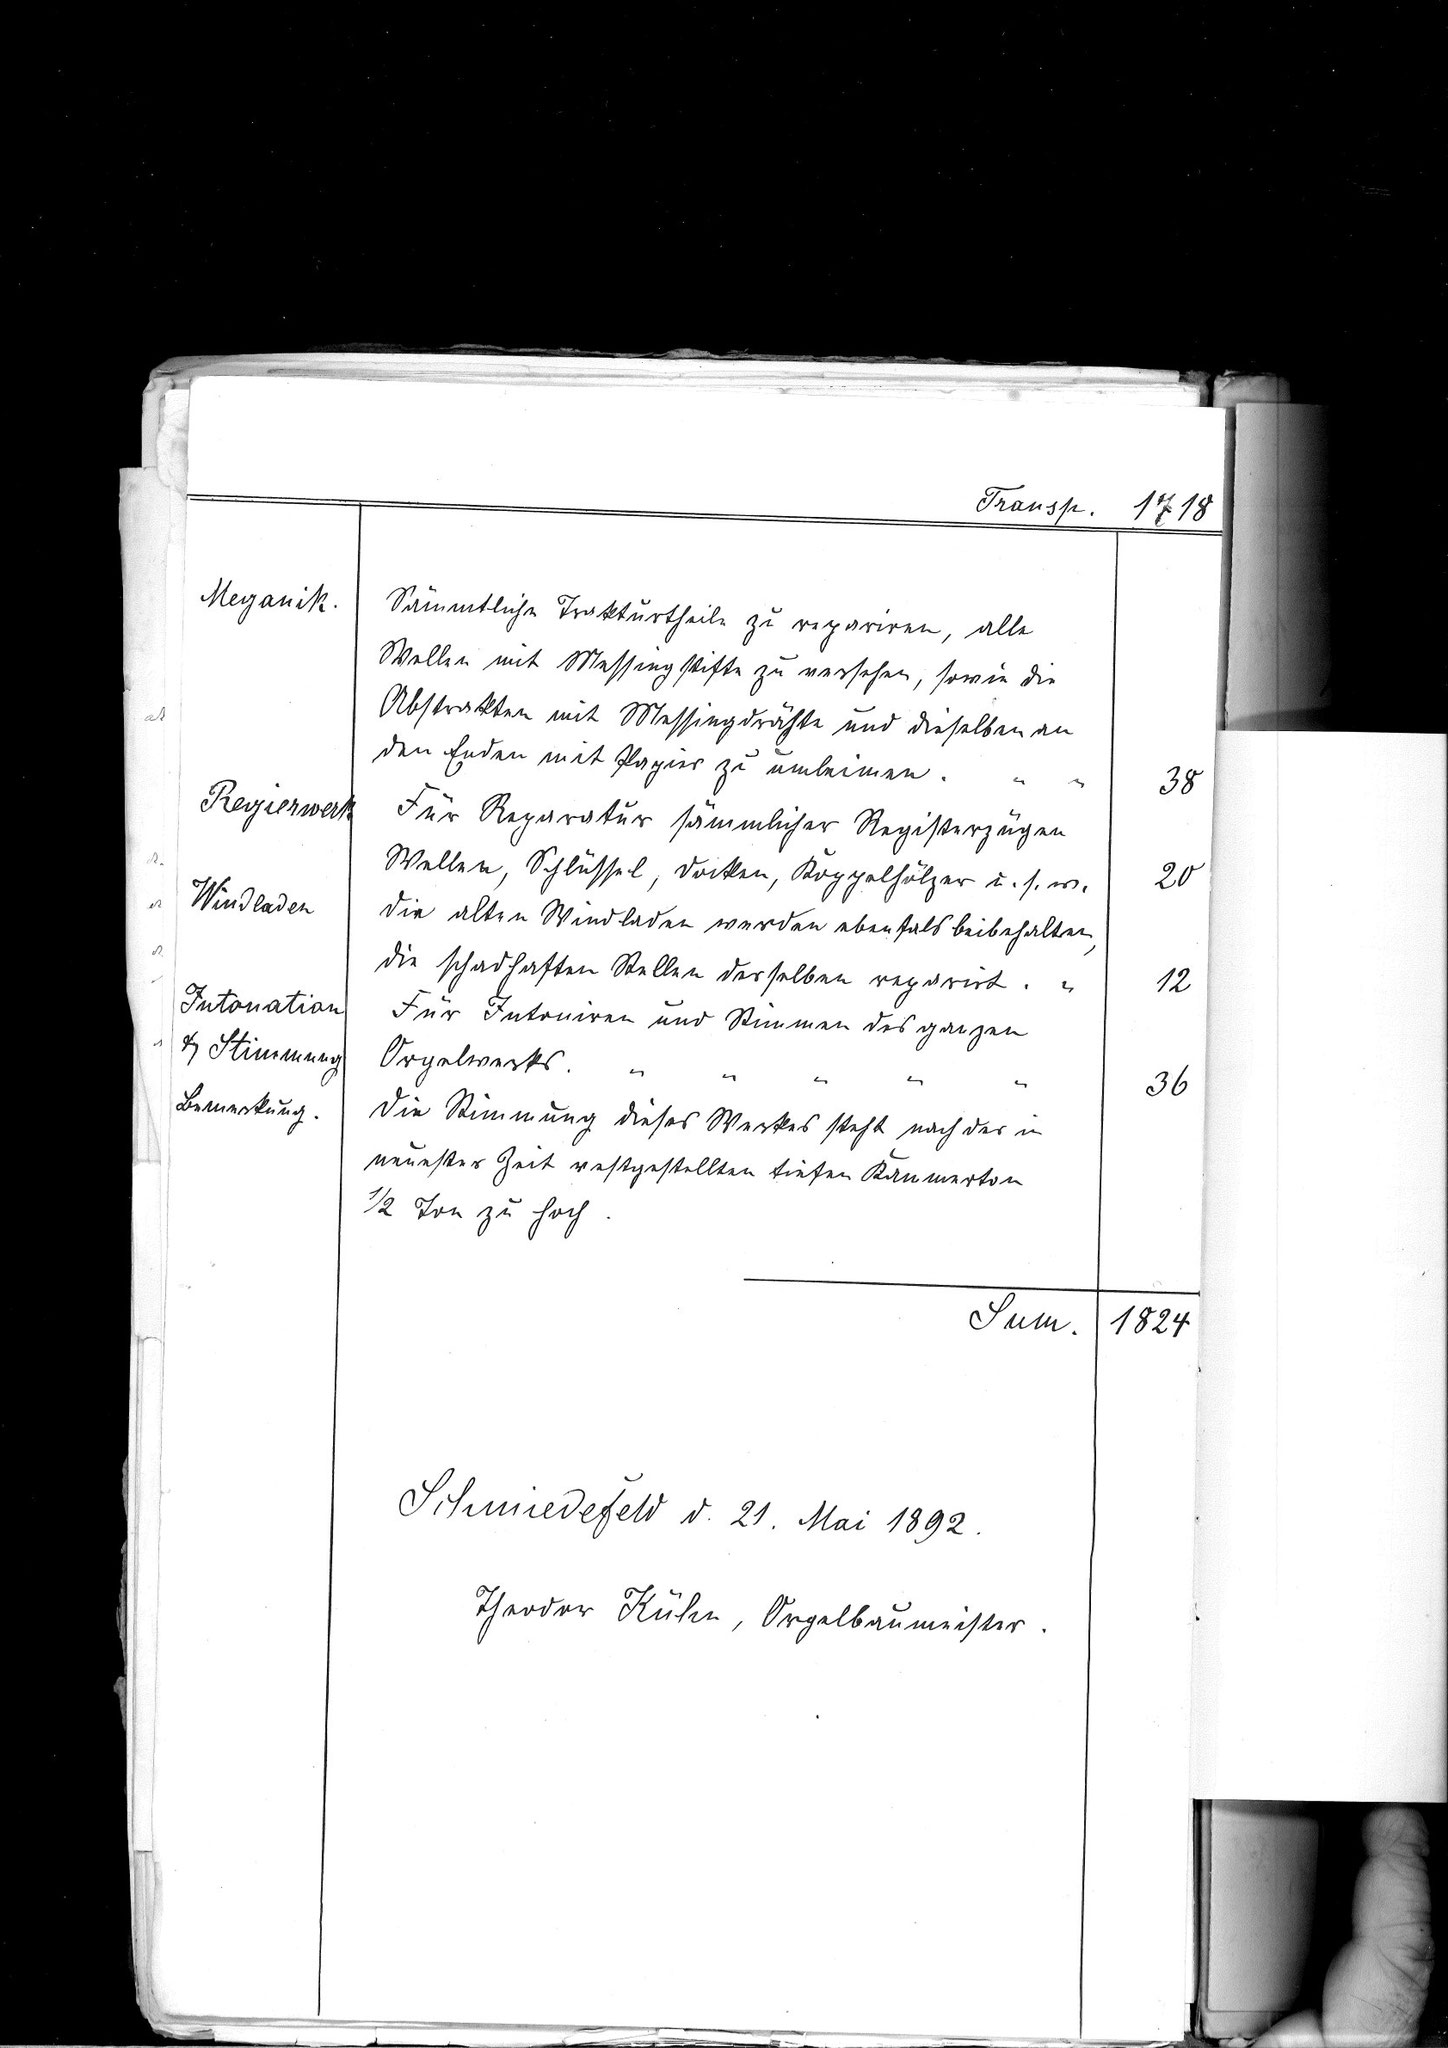 Transp. 1718
Meganik. Sämmtliche Trakturtheile zu repariren, alle
Wellen mit Messingstifte zu versehen, sowie die
Abstrakten mit Messingdrähte und dieselben an
den Enden mit Papier zu umleimen. " " 38
Regierwerk Für Reparatur sämmlicher Registerzügen
Wellen, Schlüssel, Docken, Koppelhölzer u. s. w. 20
Windladen Die alten Windladen werden ebenfals beibehalten,
die schadhaften Stellen derselben reparirt. " 12
Intonation Für Intoniren und Stimmen des ganzen
& Stimmung Orgelwerks. " " " " " 36
Bemerkung. Die Stimmung dieses Werkes steht nach der in
neuester Zeit vestgestellten tiefen Kammerton
1/2 Ton zu hoch.
Sum. 1824
Schmiedefeld d. 21. Mai 1892.
Theodor Kühn, Orgelbaumeister.